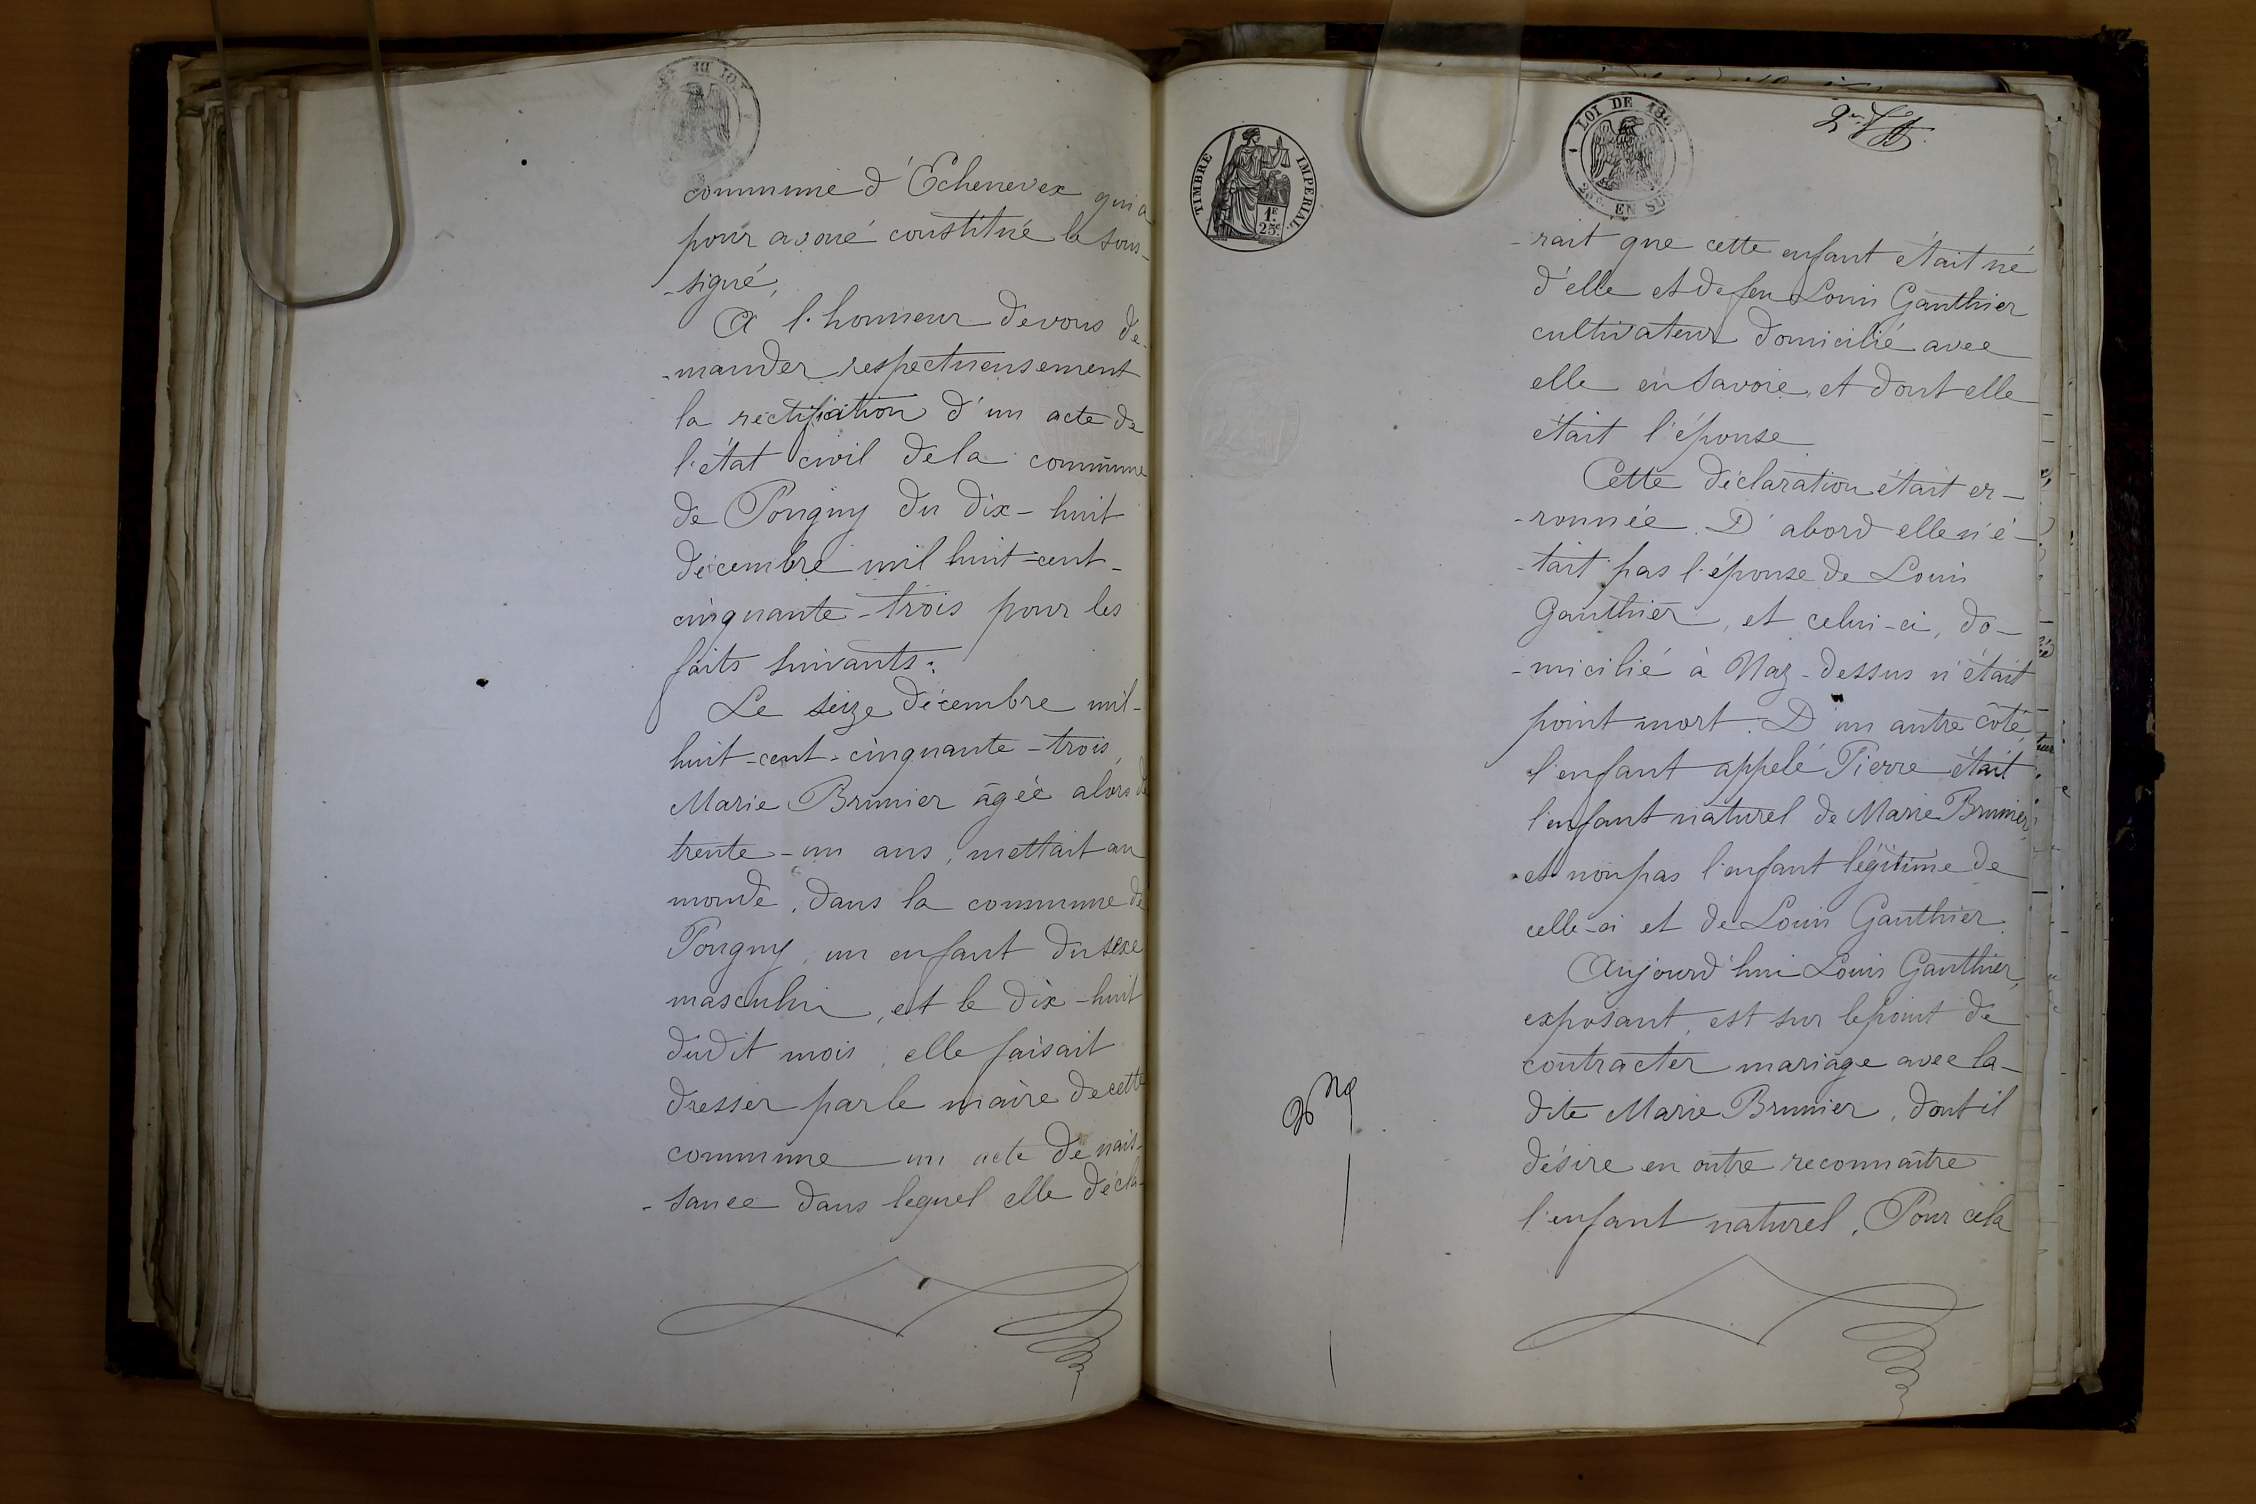 commune d'Echenevex qui a
pour avoué constitué le sous-
-signé,
A l'honneur de vous de-
-mander respectueusement
la rectification d'un acte de
l'état civil de la commune
de Pougny du dix-huit
décembre mil huit-cent-
cinquante-trois pour les
faits suivants:
Le seize décembre mil-
huit-cent-cinquante-trois,
Marie Brunier âgée alors de
trente-un ans, mettait au
monde, dans la commune de
Pougny, un enfant du sexe
masculin, et le dix-huit
dudit mois, elle faisait
dresser par le maire de cette
commune un acte de nais-
-sance dans lequel elle décla-
TIMBRE IMPERIAL.
1F.
25c.
LOI DE 186
20c. EN SUS
-rait que cette enfant était né
d'elle et de feu Louis Gauthier
cultivateur domicilié avec
elle en Savoie, et dont elle
était l'épouse.
Cette déclaration était er-
-ronnée. D'abord elle n'é-
-tait pas l'épouse de Louis
Gauthier, et celui-ci, do-
-micilié à Naz-dessus n'était
point mort. D'un autre côté,
l'enfant appelé Pierre était
l'enfant naturel de Marie Brunier,
et non pas l'enfant légitime de
celle-ci et de Louis Gauthier.
Aujourd'hui Louis Gauthier,
exposant, est sur le point de
contracter mariage avec la-
dite Marie Brunier, dont il
désire en outre reconnaître
l'enfant naturel. Pour cela